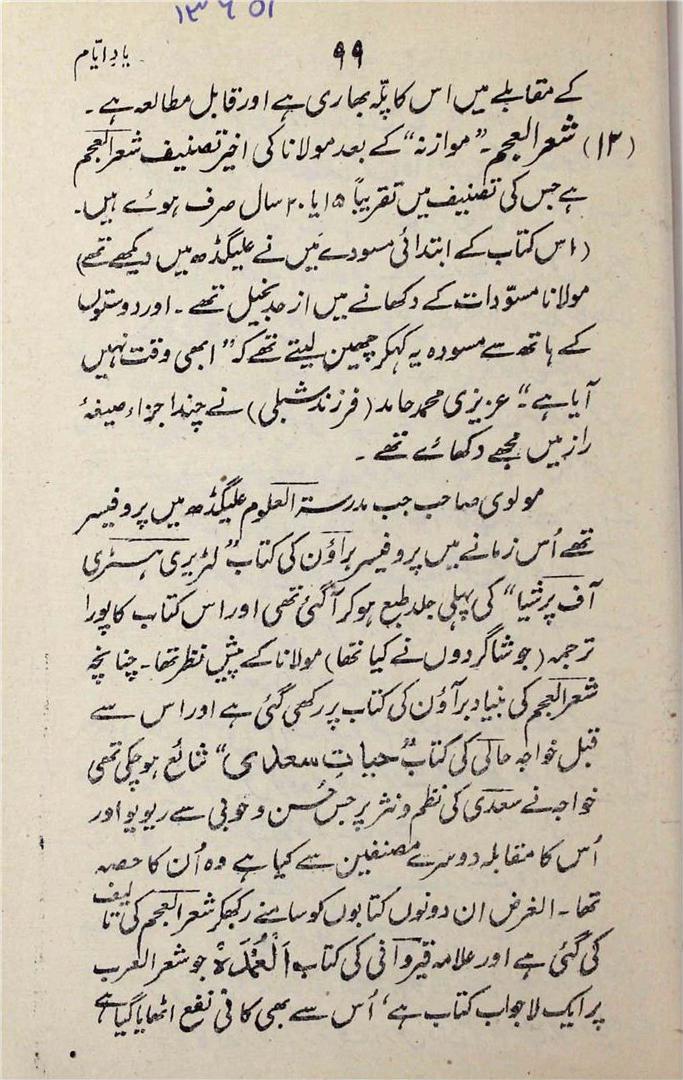 ۱۳۶۵۱
۹۹
یادِ ایّام
کے مقابلے میں اس کا پلّہ بھاری ہے اور قابل مطالعہ ہے۔
(۱۲) شعر العجم۔ "موازنہ" کے بعد مولانا کی اخیر تصنیف شعر العجم
ہے جس کی تصنیف میں تقریباً ۱۵ یا ۲۰ سال صرف ہوئے ہیں۔
(اس کتاب کے ابتدائی مسودے میں نے علیگڈھ میں دیکھے تھے)
مولانا مسوّدات کے دکھانے میں از حد بخیل تھے۔ اور دوستوں
کے ہاتھ سے مسودہ یہ کہکر چھین لیتے تھے کہ "ابھی وقت نہیں
آیا ہے"۔ عزیزی محمد حامد (فرزند شبلی) نے چند اجزاء صیغۂ
راز میں مجھے دکھائے تھے۔
مولوی صاحب جب مدرسۃ العلوم علیگڈھ میں پروفیسر
تھے اُس زمانے میں پروفیسر براؤن کی کتاب "لٹریری ہسٹری
آف پرشیا" کی پہلی جلد طبع ہو کر آ گئی تھی اور اس کتاب کا پورا
ترجمہ (جو شاگردوں نے کیا تھا) مولانا کے پیش نظر تھا۔ چنانچہ
شعر العجم کی بنیاد برآؤن کی کتاب پر رکھی گئی ہے اور اس سے
قبل خواجہ حالی کی کتاب "حیاتِ سعدی" شائع ہو چکی تھی
خواجہ نے سعدی کی نظم و نثر پر جس حُسن و خوبی سے ریویو اور
اُس کا مقابلہ دوسرے مصنفین سے کیا ہے وہ اُن کا حصہ
تھا۔ الغرض ان دونوں کتابوں کو سامنے رکھکر شعر العجم کی تالیف
کی گئی ہے اور علامہ قیروآنی کی کتاب اَلْعُمْدَہْ جو شعر العرب
پر ایک لاجواب کتاب ہے، اُس سے بھی کافی نفع اٹھایا گیا ہے